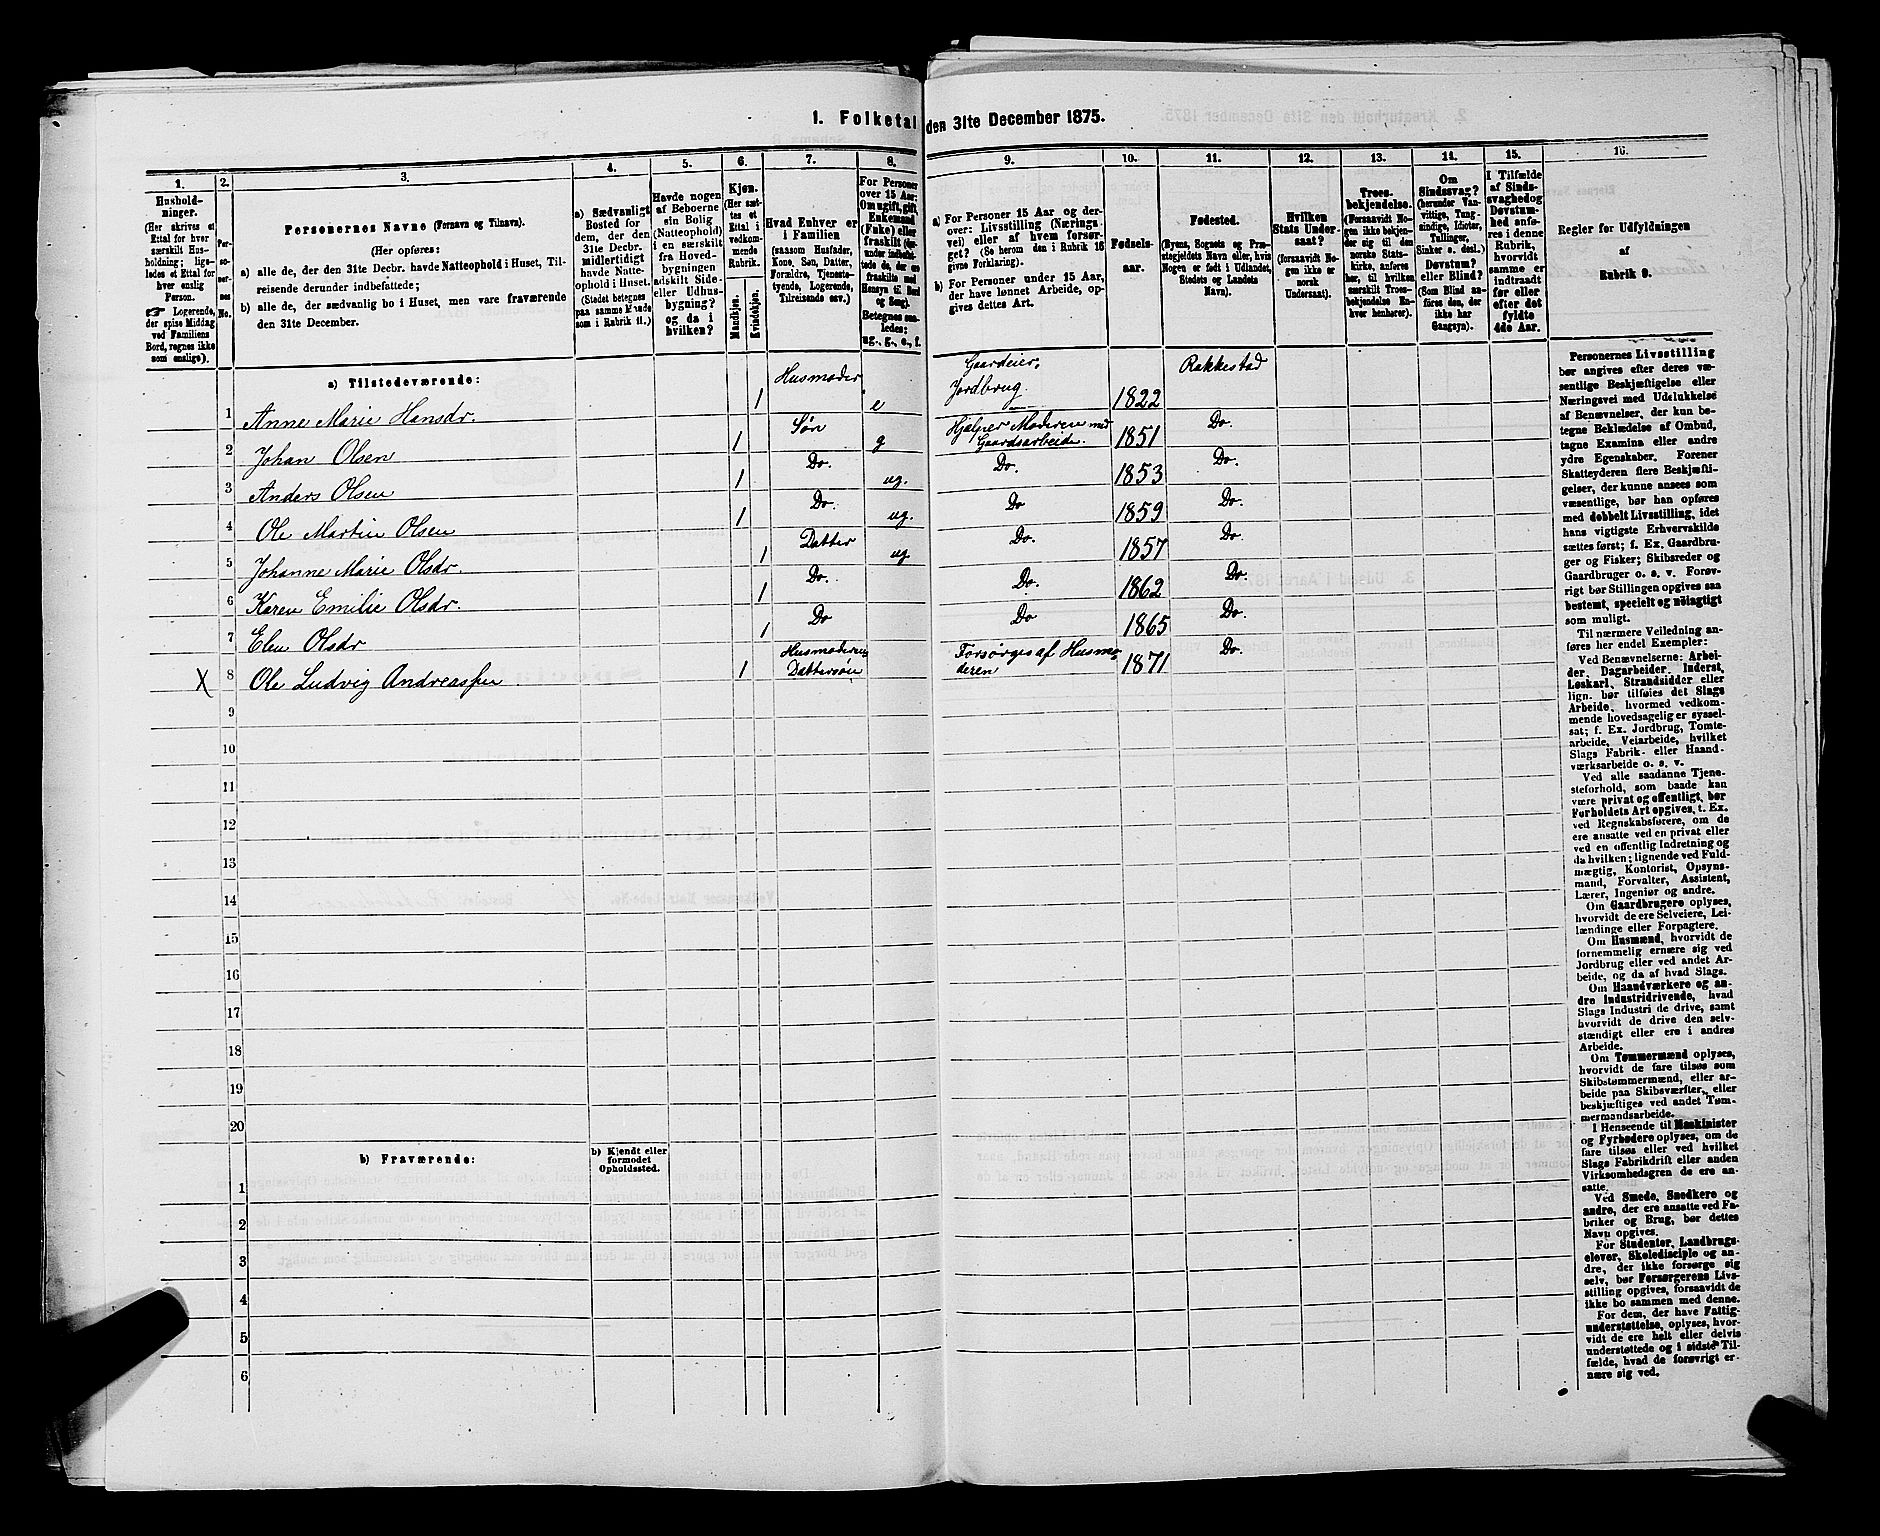 1. Folketal den 31te December 1875.
1.
2.
3.
4.
5.
6.
7.
8.
9.
10.
11.
12.
13.
14.
15.
16.
Hushold-
ninger.
(Her skrives et
Ettal for hver
særskilt Hus-
holdning; lige-
ledes et Ettal for
hver enslig
Person.
☞ Logerende,
der spise Middag
ved Familiens
Bord, regnes ikke
som enslige).
Per-
so-
ner-
nes
No.
Personernes Navne (Fornavn og Tilnavn).
(Her opføres:
a) alle de, der den 31te Decbr. havde Natteophold i Huset, Til-
reisende derunder indbefattede;
b) alle de, der sædvanlig bo i Huset, men vare fraværende
den 31te December.
a) Sædvanligt
Bosted for
dem, der den
31te Decbr.
midlertidigt
havde Natte-
ophold i Huset.
(Stedet betegnes
paa samme Maade
som i Rubrik 11.)
Havde nogen
af Beboerne
ein Bolig
(Natteophold)
i en særskilt
fra Hoved-
bygningen
adskilt Side-
eller Udhus-
bygning?
og da i
hvilken?
Kjøn.
(Her sæt-
tes et
Ettal i
vedkom-
mende
Rubrik.
Mandkjøn.
Kvindekjøn.
Hvad Enhver er
i Familien
(saasom Husfader,
Kone, Søn, Datter,
Forældre, Tjeneste-
tyende, Logerende,
Tilreisende osv.)
For Personer
over 15 Aar:
Om ugift, gift,
Enkemand
(Enke) eller
fraskilt
Hensyn til Bord
og Seng).
Betegnes saa-
ledes:
ug., g., e., f.
a) For Personer 15 Aar og der-
over: Livsstilling (Nærings-
vei) eller af hvem forsør-
get? (Se herom den i Rubrik 16
givne Forklaring).
b) For Personer under 15 Aar,
der have lønnet Arbeide, op-
gives dettes Art.
Fødsels-
aar.
Fødested.
(Byens, Sognets og Præ-
stegjeldets Navn eller, hvis
Nogen er født i Udlandet,
Stedets og Landets
Navn).
Hvilken
Stats Under-
saat?
(forsaavidt No-
gen ikke er
norsk
Undersaat).
Troes-
bekjendelse.
(Forsaavidt No-
gen ikke bekjen-
der sig til den
norske Stats-
kirke, anføres
her, til hvilken
særskilt Troes-
bekjendelse En-
hver henhører).
Om
Sindssvag?
(herunder Van-
vittige, Tung-
sindige, Idioter,
Tullinger,
Sinker o. desl.)
Døvstum?
eller Blind?
(Som Blind an-
føres den, der
ikke har
Gangsyn).
I Tilfælde
af Sinds-
svaghed og
Døvstum-
hed anfø-
res i denne
Rubrik,
hvorvidt
samme er
indtraadt
før eller
efter det
fyldte
4de Aar.
Regler for Udfyldningen
af
Rubrik 9.
a) Tilstedeværende:
1 Anne Marie Hansdr. 1 Husmoder e Gaardeier, Jordbrug 1822 Rakkestad
2 Johan Olsen 1 Søn g Hjælper Moderen med Gaardsarbeide. 1851 Do.
3 Anders Olsen 1 Do. ug. Do. 1853 Do.
4 Ole Martin Olsen 1 Do. ug. Do 1859 Do.
5 Johanne Marie Olsdr. 1 Datter ug Do. 1857 Do.
6 Karen Emilie Olsdr. 1 Do. Do. 1862 Do.
7 Elen Olsdr 1 Do Do 1865 Do.
X 8 Ole Ludvig Andreassen 1 Husmoderens Dattersøn Forsørges af Husmoderen 1871 Do.
9
10
11
12
13
14
15
16
17
18
19
20
b) Fraværende:
b) Kjendt eller
formodet
Opholdssted.
1
2
3
4
5
6
Personernes Livsstilling
bør angives efter deres væ-
sentlige Beskjæftigelse eller
Næringsvei med Udelukkelse
af Benævnelser, der kun be-
tegne Beklædelse af Ombud,
tagne Examina eller andre
ydre Egenskaber. Forener
Skatteyderen flere Beskjæfti-
gelser, der kunne ansees som
væsentlige, bør han opføres
med dobbelt Livsstilling, idet
hans vigtigste Erhvervskilde
sættes først; f. Ex. Gaardbru-
ger og Fisker; Skibsreder og
Gaardbruger o. s. v. Forøv-
rigt bør Stillingen opgives saa
bestemt, specielt og nöiagtigt
som muligt.
Til nærmere Veiledning an-
føres her endel Exempler:
Ved Benævnelserne: Arbei-
der, Dagarbeider, Inderst,
Løskarl, Strandsidder eller
lign. bør tilføies det Slags
Arbeide, hvormed vedkom-
mende hovedsagelig er syssel-
sat; f. Ex. Jordbrug, Tomte-
arbeide, Veiarbeide, hvilket
Slags Fabrik- eller Haand-
værksarbeide o. s. v.
Ved alle saadanne Tjene-
steforhold, som baade kan
være privat og offentligt, bør
Forholdets Art opgives, t. Ex.
ved Regnskabsførere, om de
ere ansatte ved en privat eller
ved en offentlig Indretning og
da hvilken; lignende ved Fuld-
mægtig, Kontorist, Opsyns-
mand, Forvalter, Assistent,
Lærer, Ingeniør og andre.
Om Gaardbrugere oplyses,
hvorvidt de ere Selveiere, Lei-
lændinge eller Forpagtere.
Om Husmænd, hvorvidt de
fornemmelig ernære sig ved
Jordbrug eller ved andet Ar-
beide, og da af hvad Slags.
Om Haandværkere og an-
dre Industridrivende, hvad
Slags Industri de drive, samt
hvorvidt de drive den selv-
stændigt eller ere i andres
Arbeide.
Om Tømmermænd oplyses,
hvorvidt de fare tilsøs som
Skibstømmermænd, eller ar-
beide paa Skibsværfter, eller
beskjæftiges ved andet Tøm-
mermandsarbeide.
I Henseende til Maskinister
og Fyrbødere oplyses, om de
fare tilsøs eller ved hvilket
Slags Fabrikdrift eller anden
Virksomhedsgren de ere an-
satte.
Ved Smede, Snedkere og
andre, der ere ansatte ved Fa-
briker og Brug, bør dettes
Navn opgives.
For Studenter, Landbrugs-
elever, Skoledisciple og an-
dre, der ikke forsørge sig
selv, bør Forsørgerens Livs-
stilling opgives, forsaavidt de
ikke bo sammen med denne.
For dem, der have Fattig-
understøttelse, oplyses, hvor-
vidt de ere helt eller delvis
understøttede og i sidste Til-
fælde, hvad de forøvrigt er-
nære sig ved.